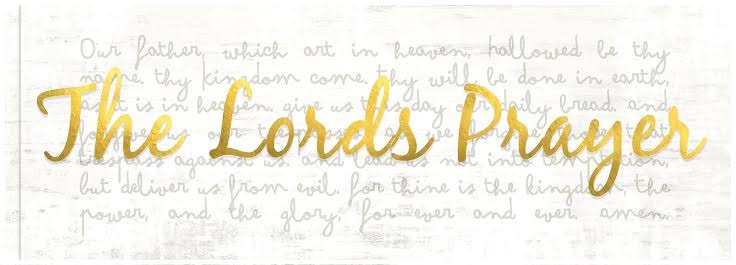 The Lords Prayer
Our father, which art in heaven, hallowed be thy
name. thy kingdom come. thy will be done in earth,
as it is in heaven. give us this day our daily bread. and
forgive us our trespasses, as we forgive those that
trespass against us. and lead us not into temptation,
but deliver us from evil. for thine is the kingdom, the
power, and the glory, for ever and ever. amen.